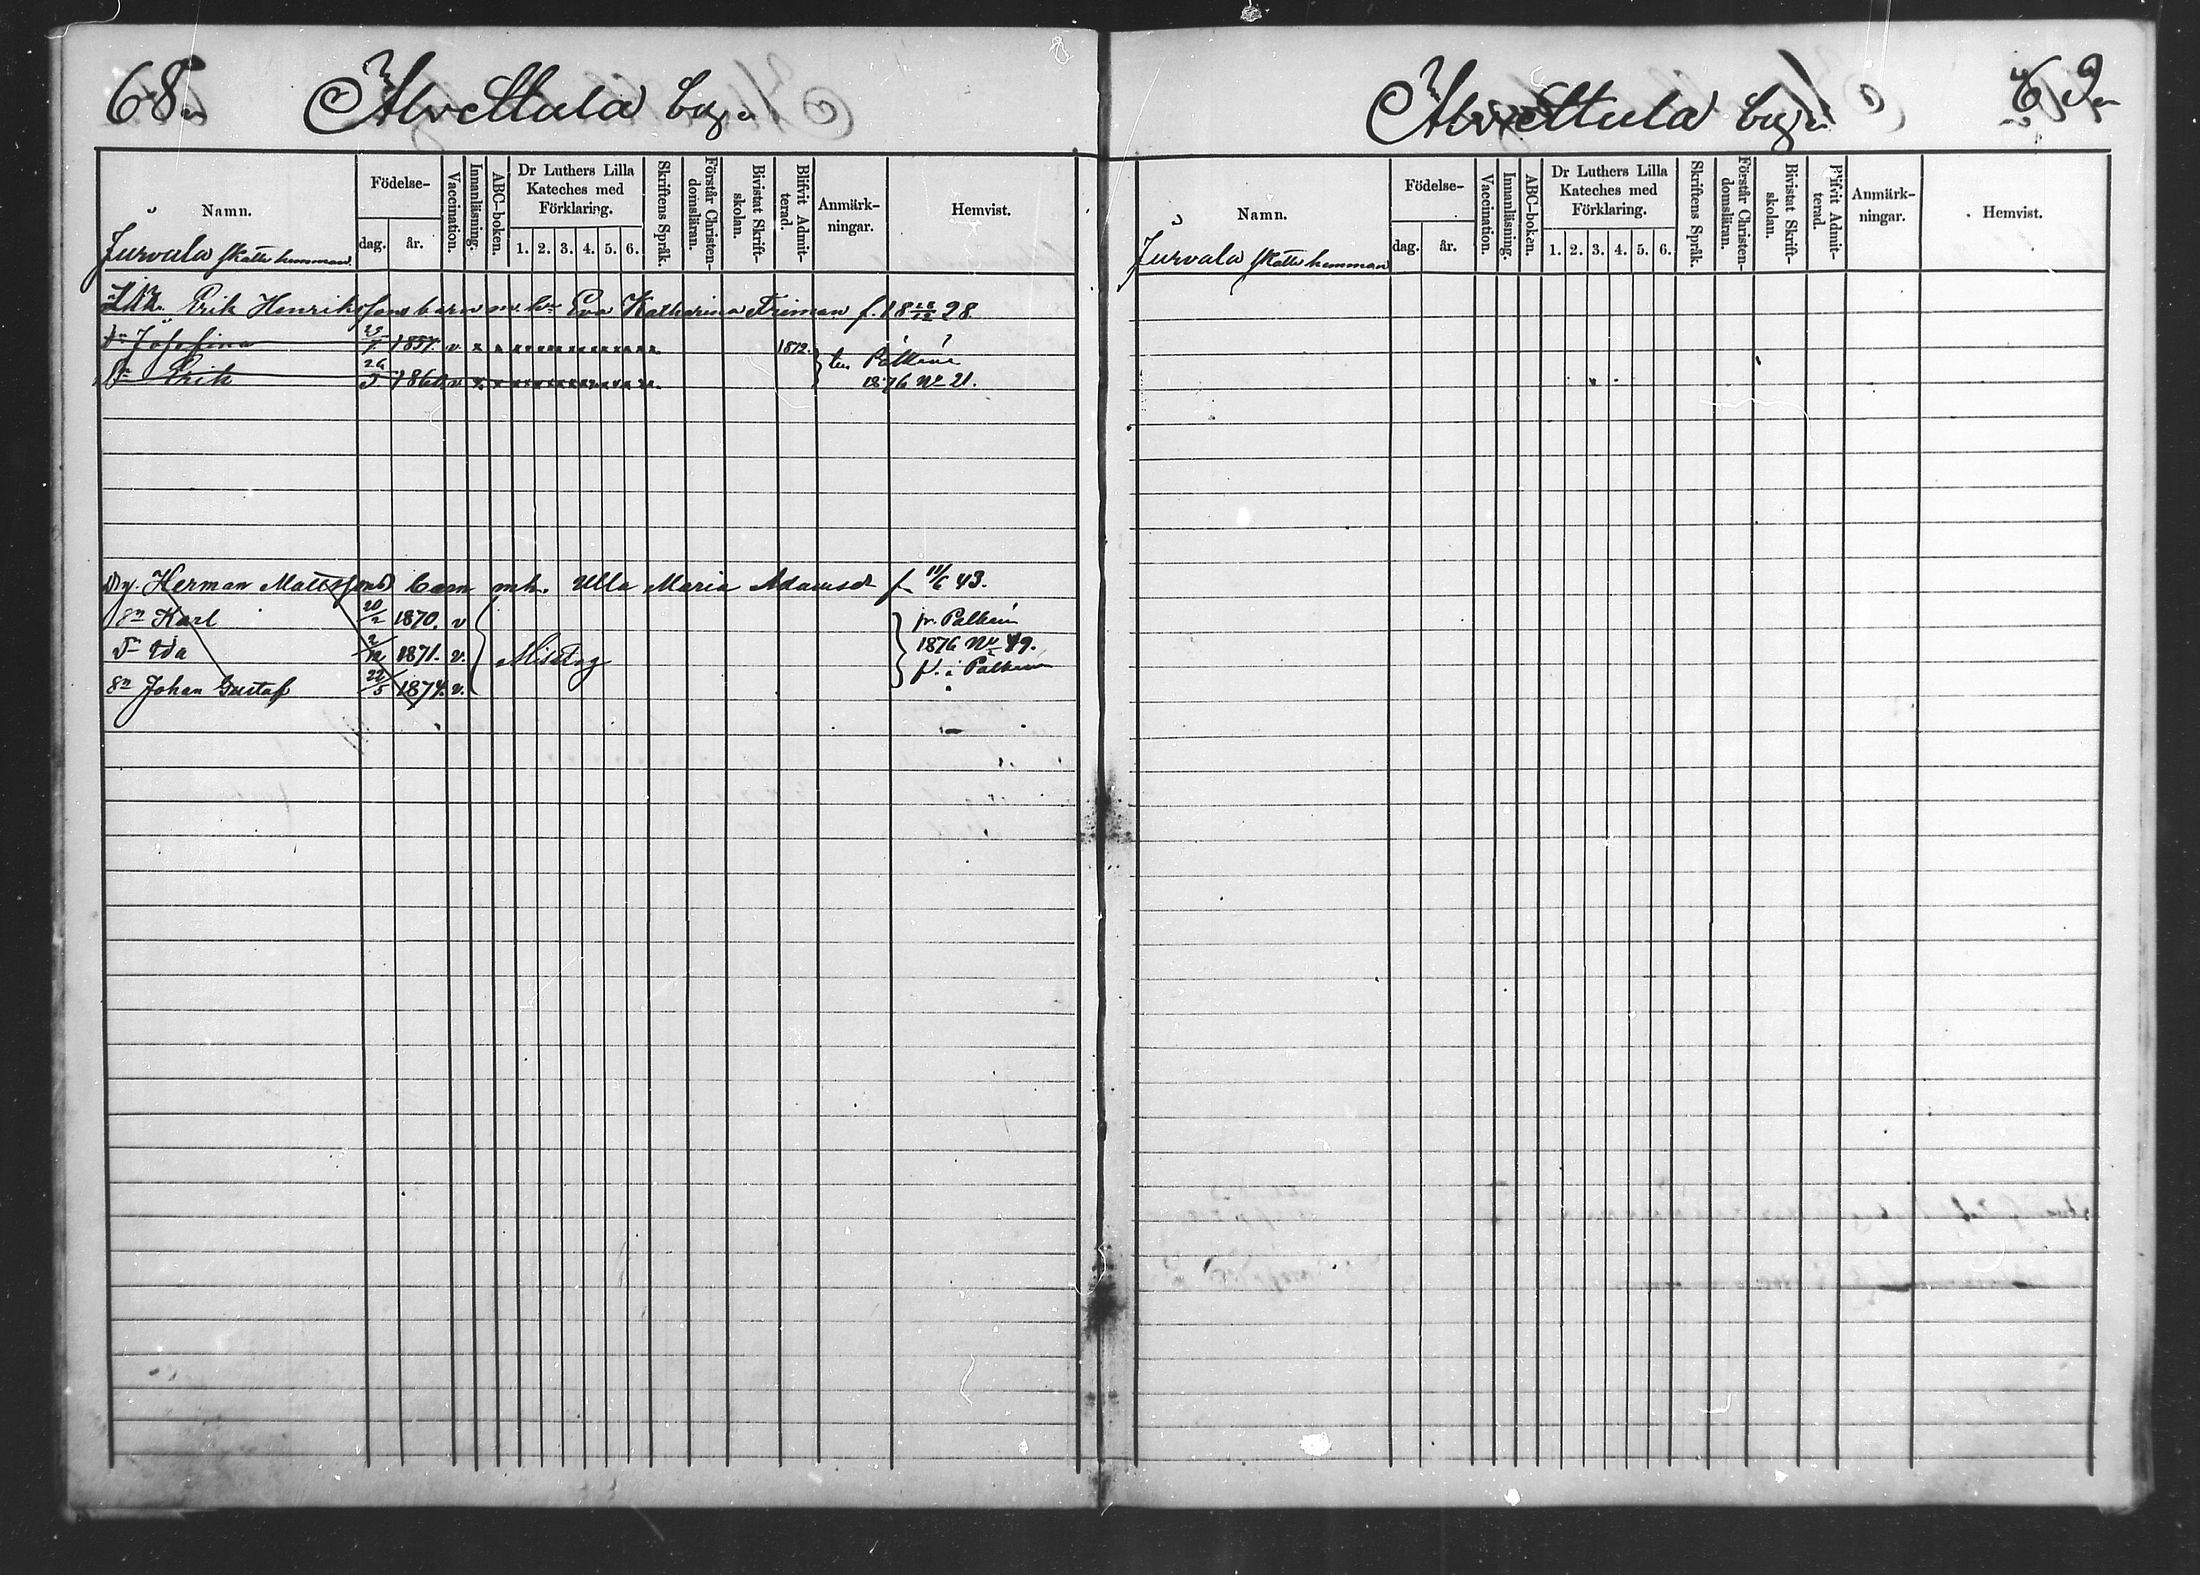 68. Alvettula by.
Namn. Födelse- dag. år. Vaccination. Innanläsning. ABC-boken. Dr Luthers Lilla Kateches med Förklaring. 1. 2. 3. 4. 5. 6. Skriftens Språk. Förstår Christendomsläran. Bivistat Skriftskolan. Blifvit Admitterad. Anmärkningar. Hemvist.
Jurvala skattehemman
Erik Henrikssons barn m. h. Eva Katharina Friman f. 18 12 28
Dr Josefina 1857. v 1872.
Sn Erik 26/5 1860 v till Pälkäne 1876 No 21.
Herman Mattsson barn mh. Ulla Maria Adamsd f. 11/6 43.
Sn Karl 20/2 1870. v fr. Pälkäne
Dr Ida 2/12 1871. v. 1876 No 49.
Sn Johan Gustaf 22/5 1874. v. i Pälkäne
Alvettula by 69.
Namn. Födelse- dag. år. Vaccination. Innanläsning. ABC-boken. Dr Luthers Lilla Kateches med Förklaring. 1. 2. 3. 4. 5. 6. Skriftens Språk. Förstår Christendomsläran. Bivistat Skriftskolan. Blifvit Admitterad. Anmärkningar. Hemvist.
Jurvala skattehemman